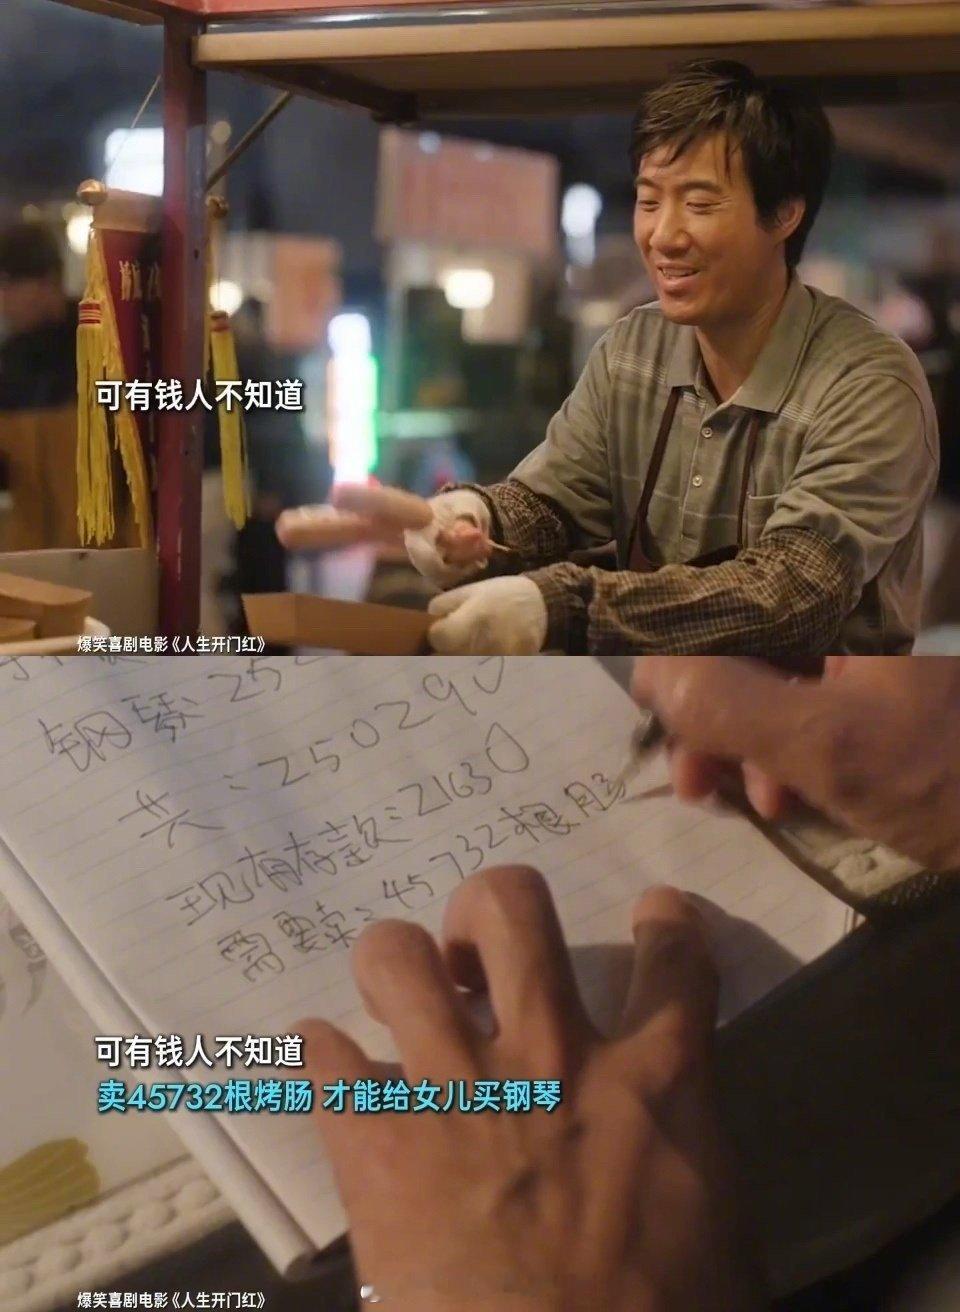 可有钱人不知道
爆笑喜剧电影《人生开门红》
钢琴:25
共:250290
现有存款:21630
需要卖:45732根肠
可有钱人不知道
卖45732根烤肠 才能给女儿买钢琴
爆笑喜剧电影《人生开门红》